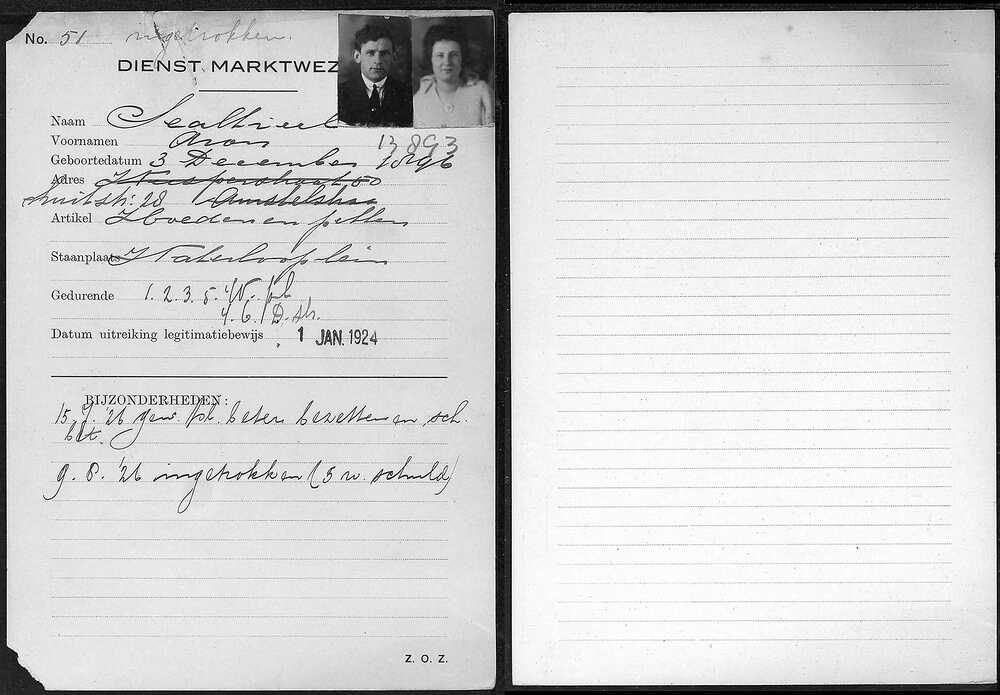 No. 51 ingetrokken.
DIENST MARKTWEZ
Naam Sealtiel
Voornamen Aron 13893
Geboortedatum 3 December 1896
Adres Weesperstraat 50
str: 28 Amstelstr
Artikel Hoeden en petten
Staanplaats Waterlooplein
Gedurende 1. 2. 3. 5.
4. 6. D. str.
Datum uitreiking legitimatiebewijs 1 JAN. 1924
BIJZONDERHEDEN:
15. 7. '26 gew. pl. beter bezetten en sch.
bet.
9. 8. '26 ingetrokken (5 w. schuld)
Z. O. Z.